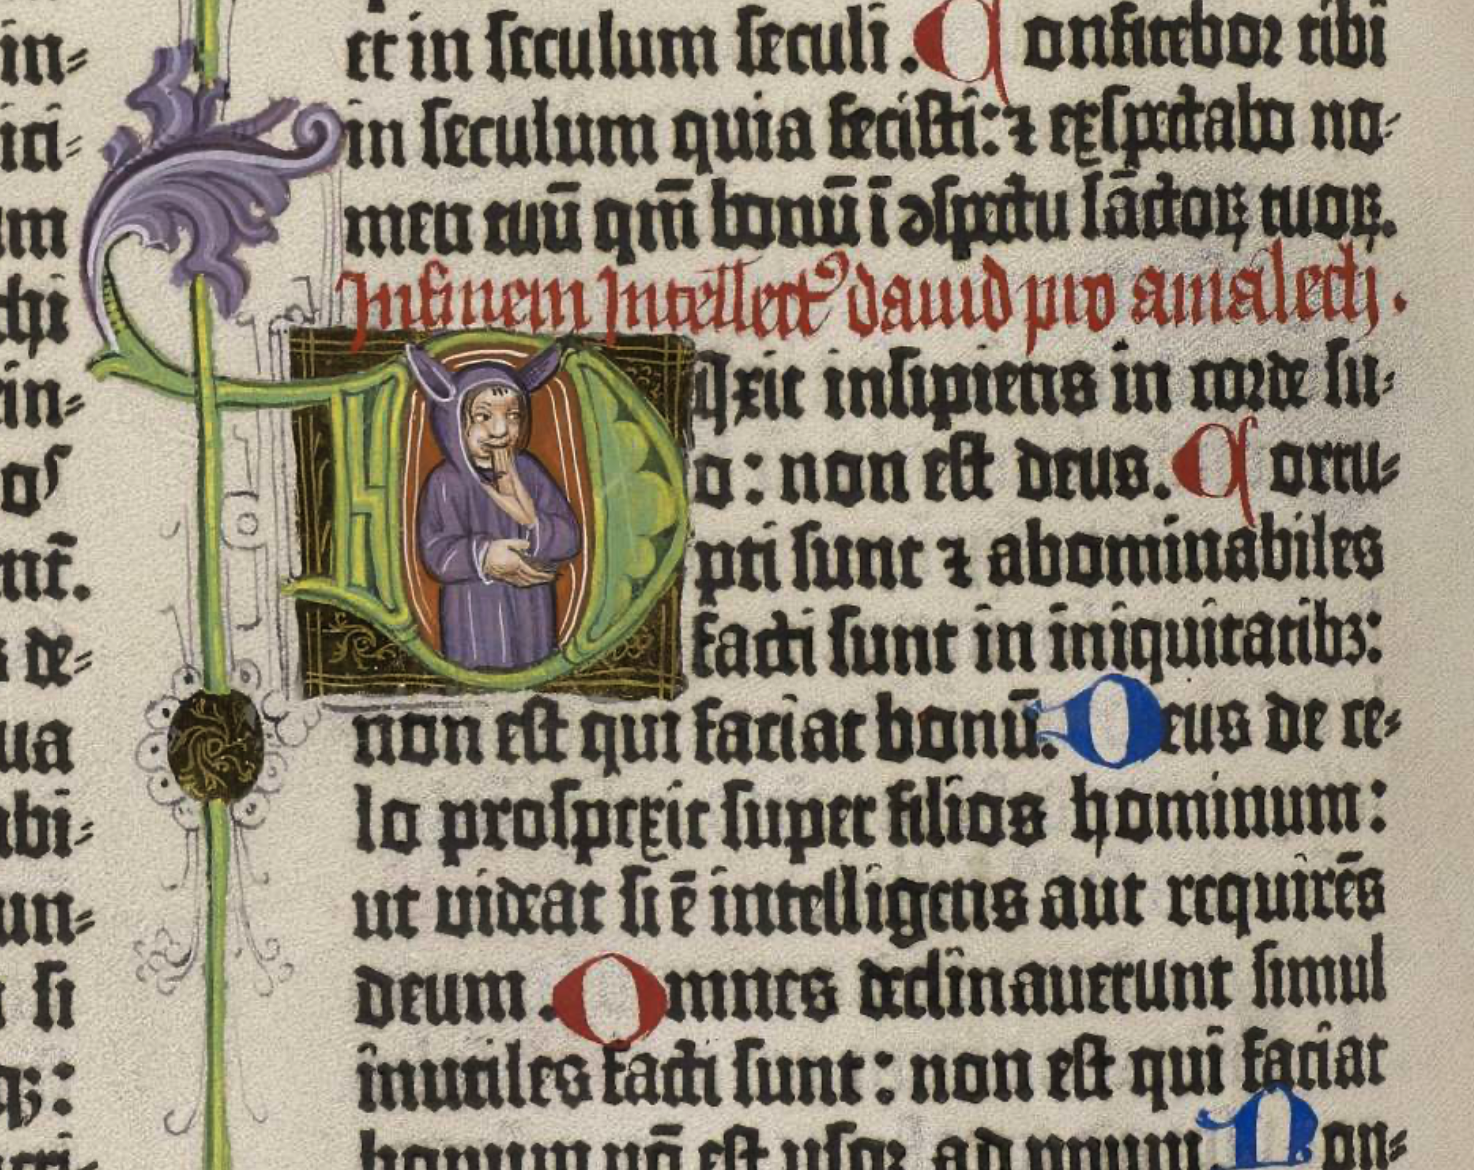 in⸗
ici⸗
um
chi
in⸗
os
nt̄.
s de⸗
ua
abi⸗
un⸗
si
qꝫ:
cri⸗
et in seculum seculi. Confitebor tibi
in seculum quia fecisti: ⁊ exspectabo no⸗
men tuū qm̄ bonū ī ↄspectu sāctoꝝ tuoꝝ.
In finem Intellectꝰ dauid pro amalech.
Dixit insipiens in corde su⸗
o: non est deus. Corru⸗
pti sunt ⁊ abominabiles
facti sunt in iniquitatibꝫ:
non est qui faciat bonū. Deus de ce⸗
lo prospexit super filios hominum:
ut videat si ē intelligens aut requirēs
deum. Omnes declinauerunt simul
inutiles facti sunt: non est qui faciat
bonum nō est usqꝫ ad unum. Non⸗